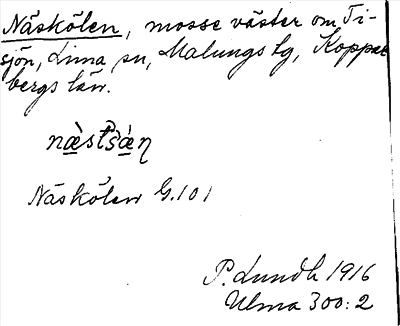 Näskölen, mosse väster om Ti-
sjön, Lima sn, Malungs tg, Koppar
bergs län.
Näskölen G.101
P. Lundh 1916
Ulma 300:2